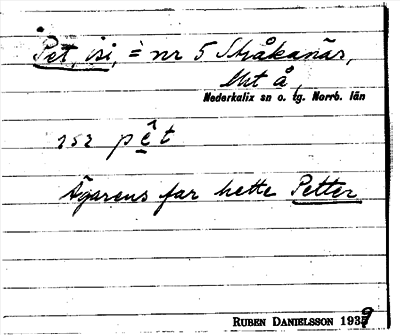 Pet, isi, = nr 5 Stråkanäs,
Mst å,
Nederkalix sn o. tg. Norrb. län
isi pêt
Ägarens far hette Petter
RUBEN DANIELSSON 1939